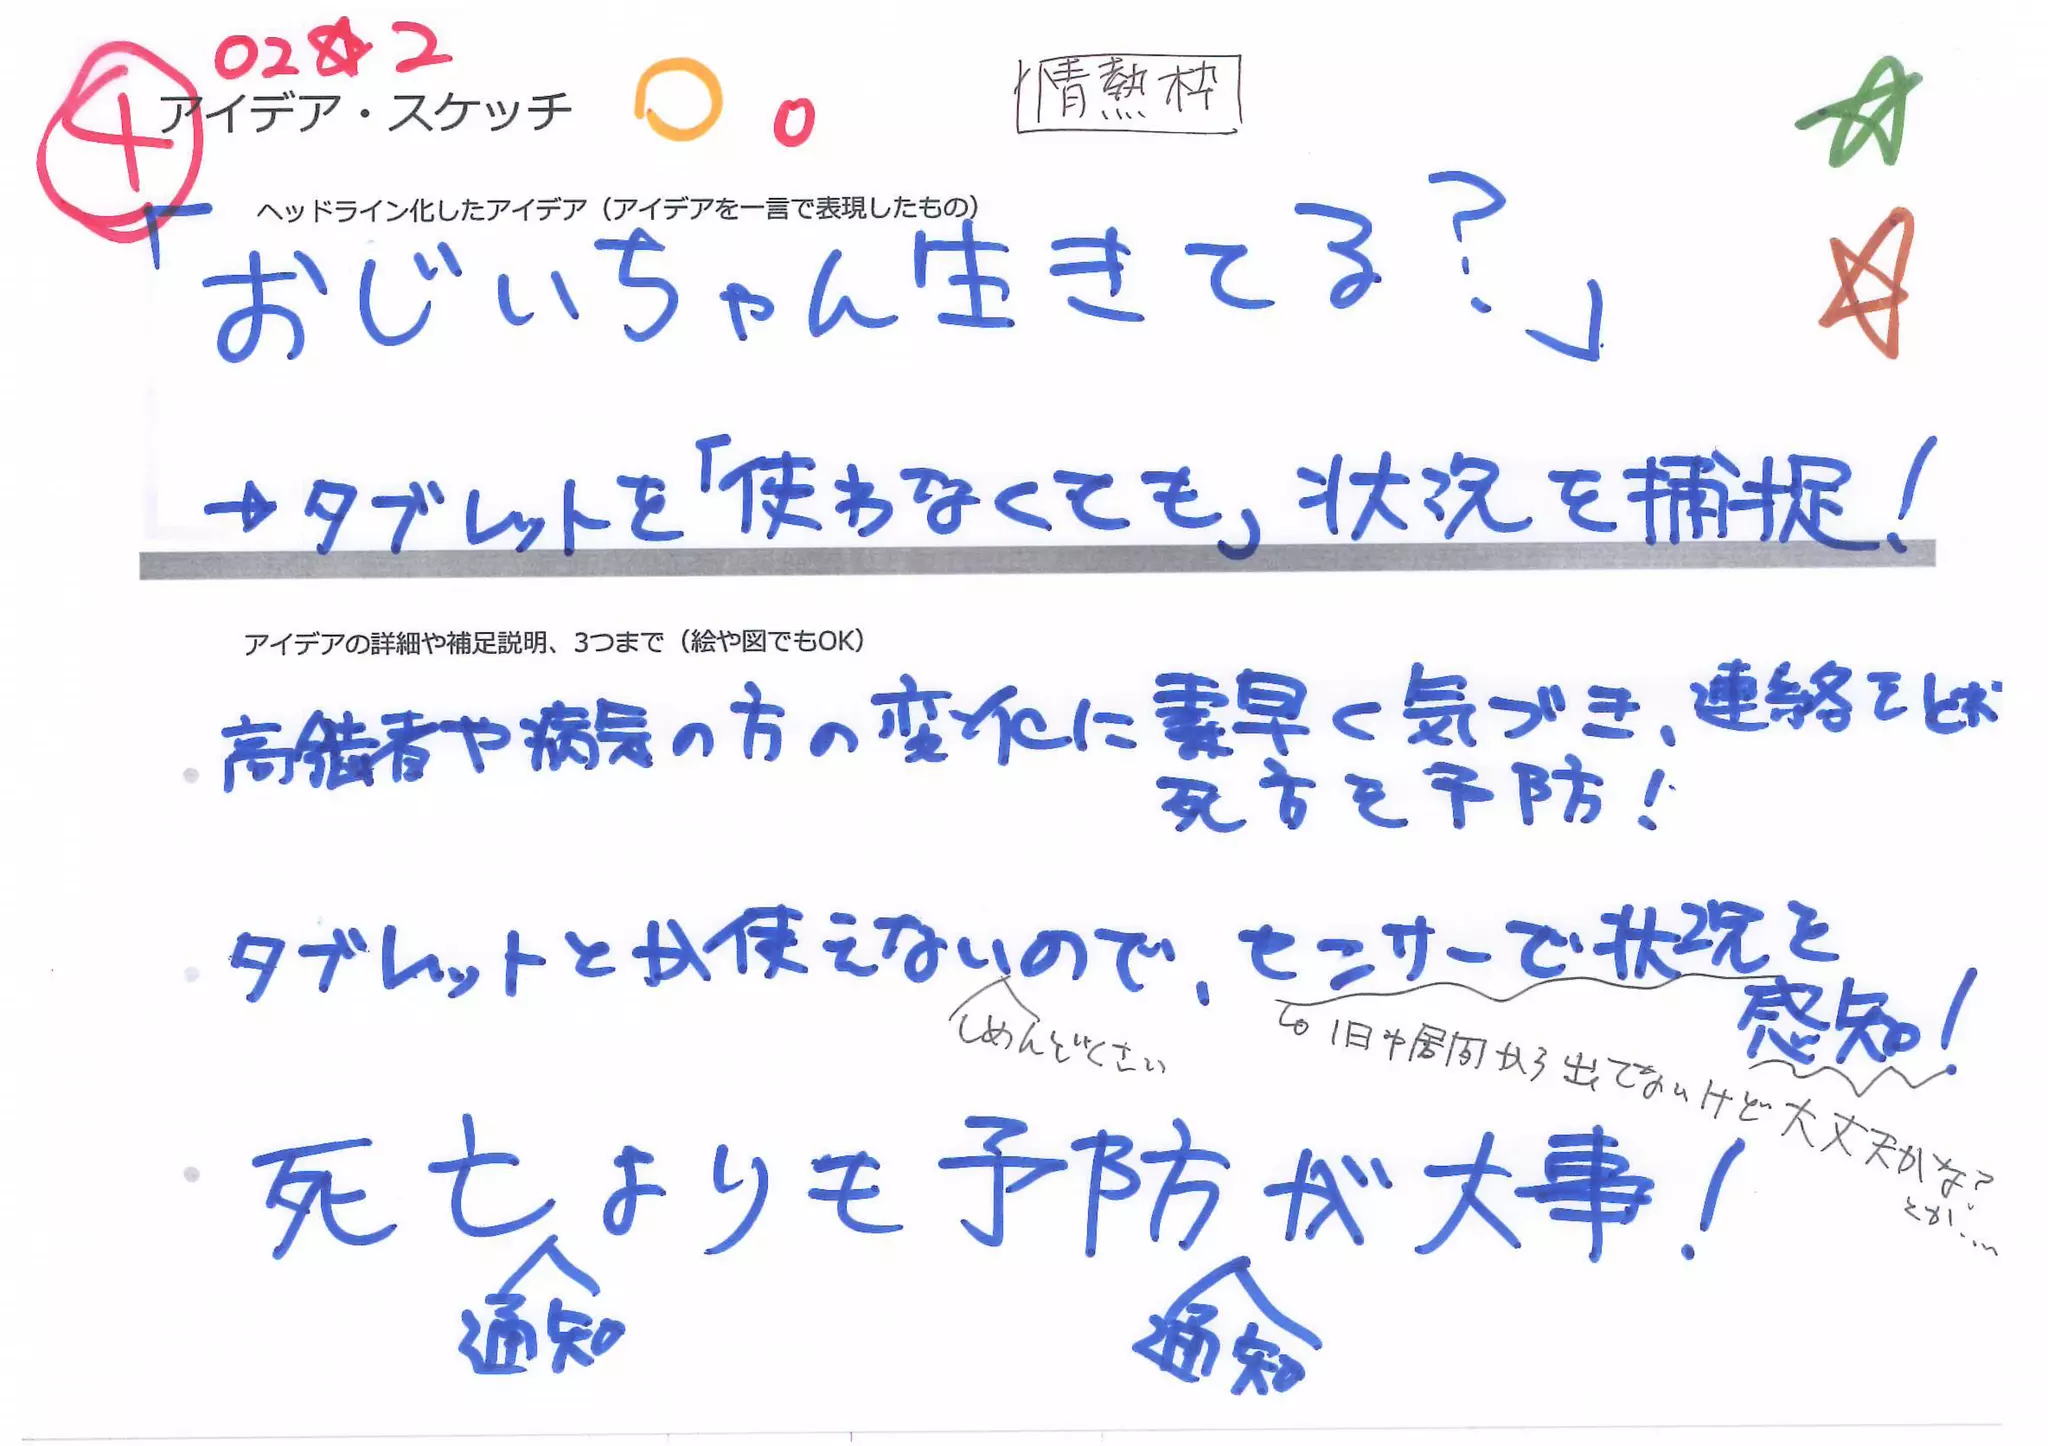 02☆2
アイデア・スケッチ
0
情熱枠
ヘッドライン化したアイデア（アイデアを一言で表現したもの）
「おじいちゃん生きてる？」
→タブレットを「使わなくても」状況を捕捉！
アイデアの詳細や補足説明、3つまで（絵や図でもOK）
・高齢者や病気の方の変化に素早く気づき、連絡をとれ
死亡を予防！
・タブレットとか使えないので、センサーで状況を
感知！
しめんどくさい
1日や居間から出てないけど大丈夫かな？
とか…
・死亡よりも予防が大事！
通知
通知